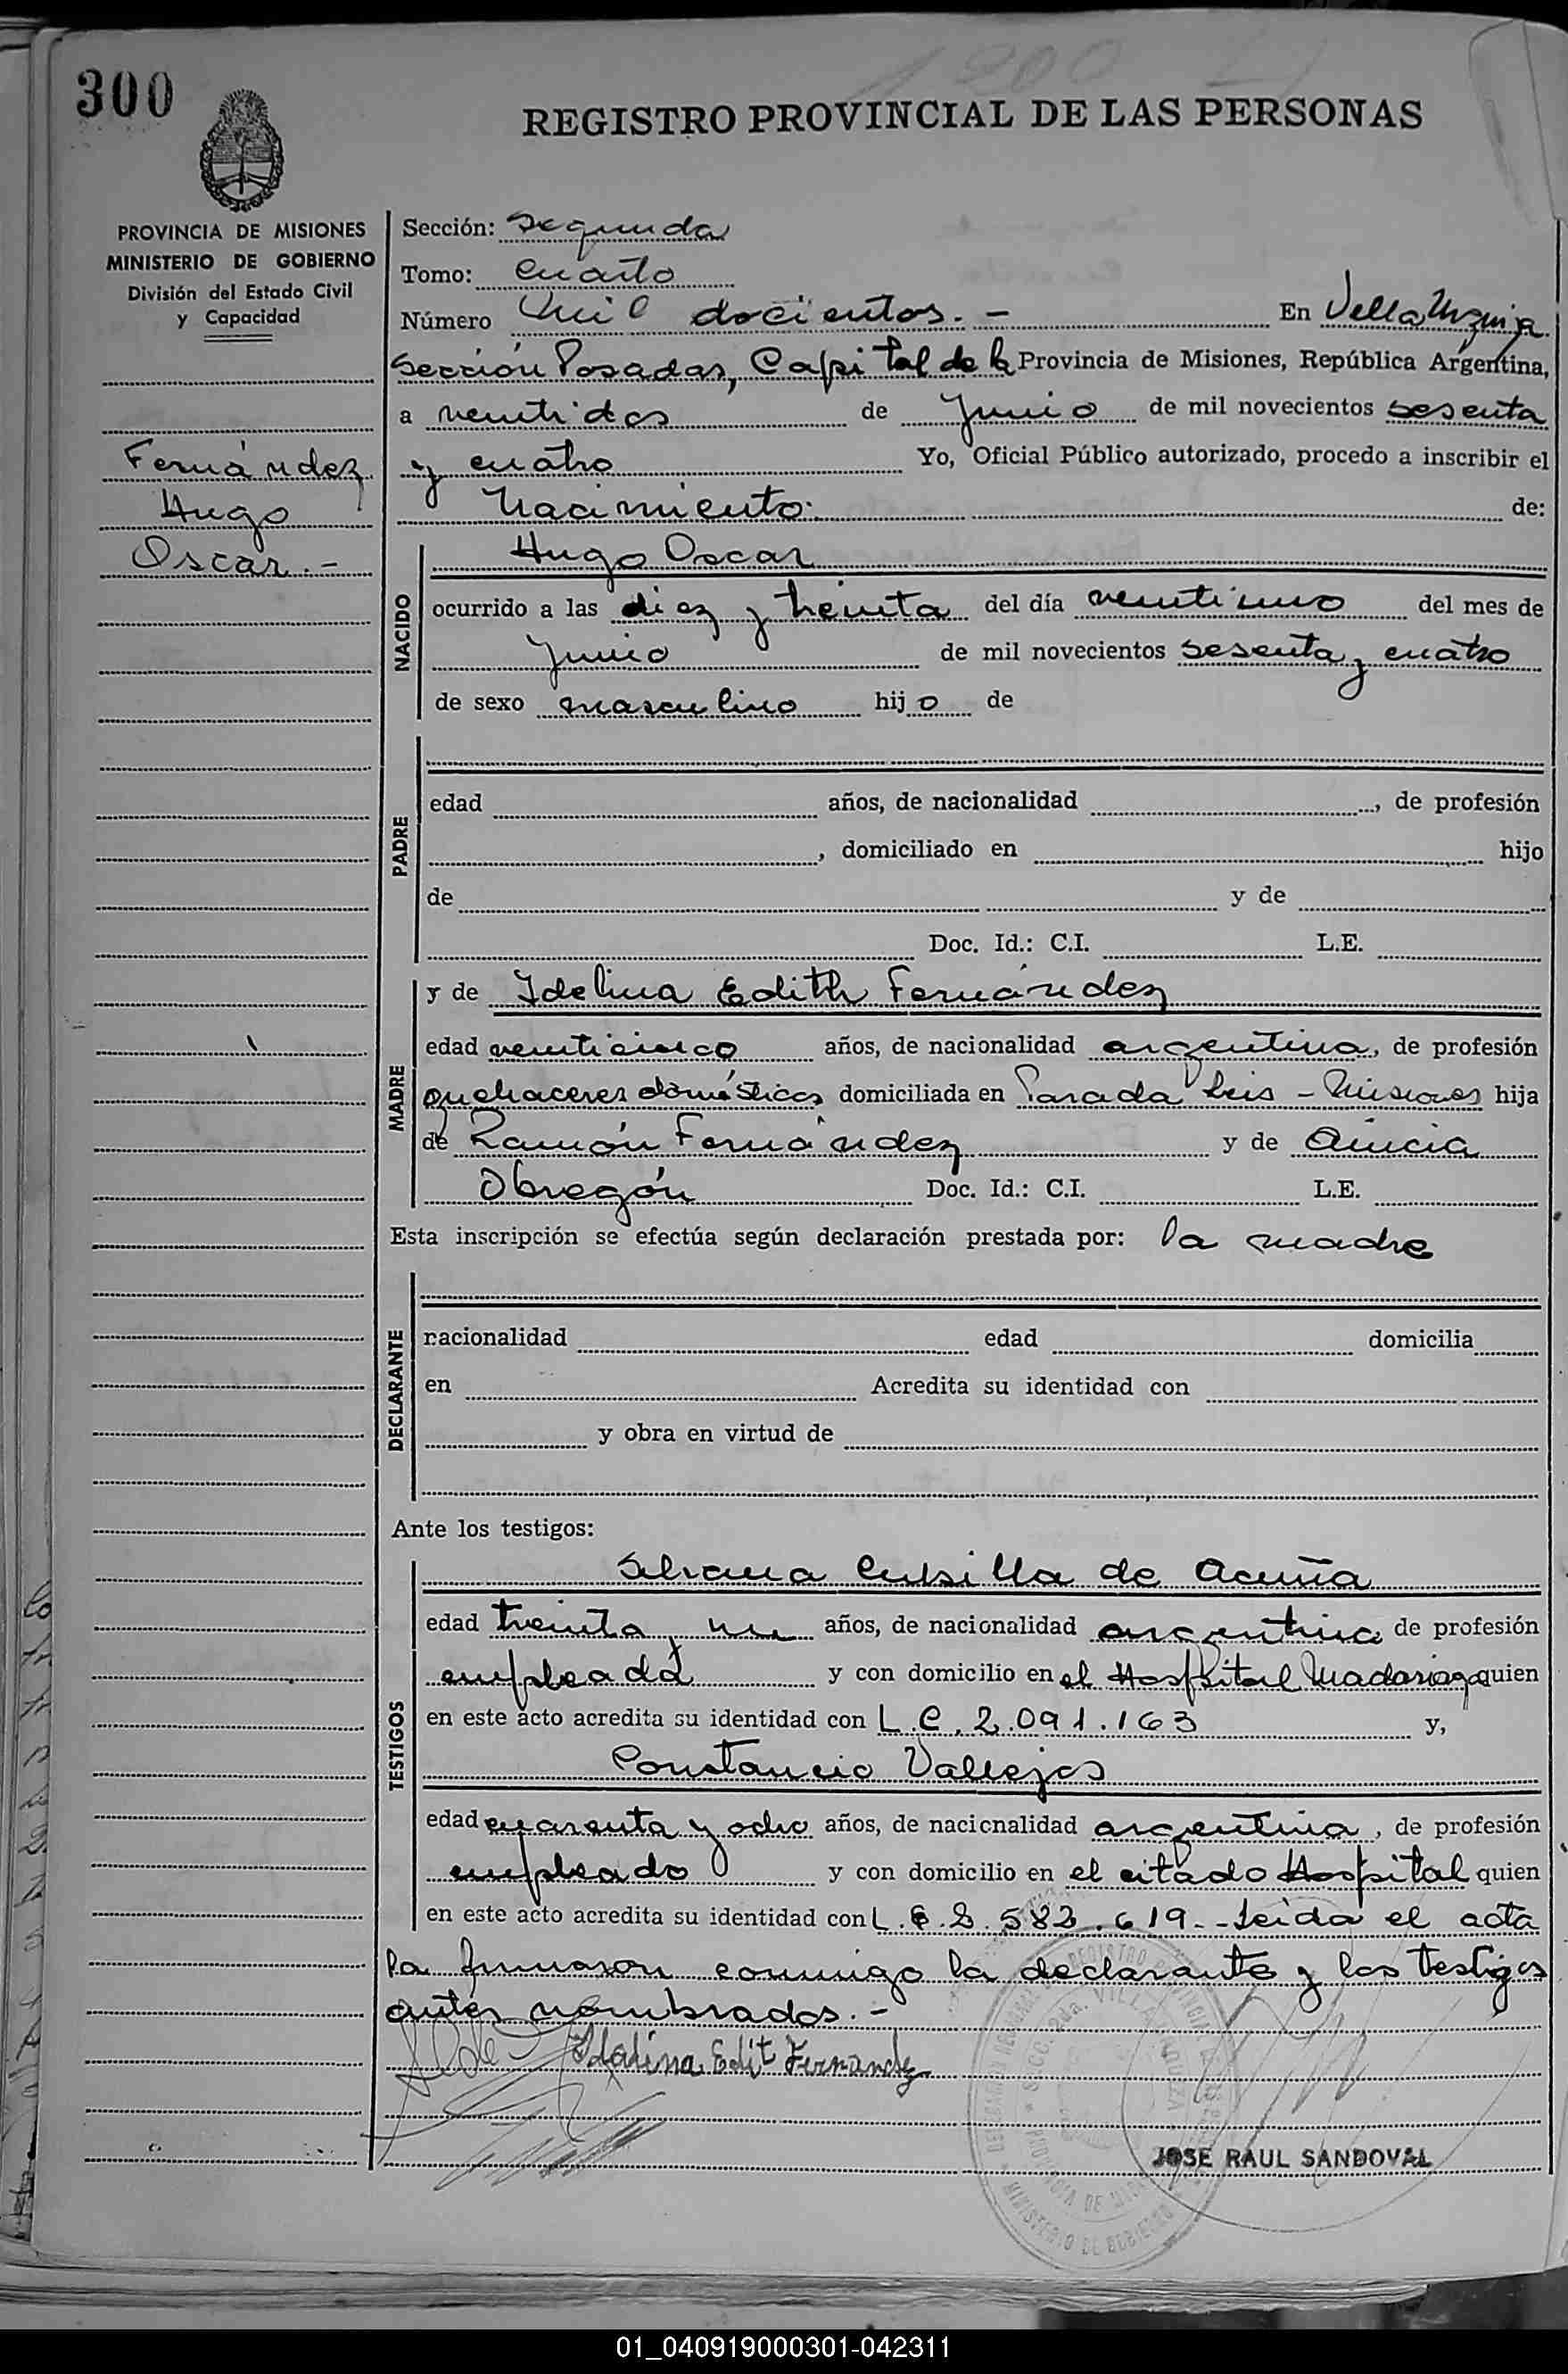 300
REGISTRO PROVINCIAL DE LAS PERSONAS
PROVINCIA DE MISIONES
MINISTERIO DE GOBIERNO
División del Estado Civil
y Capacidad
Fernández
Hugo
Oscar.-
Sección: Segunda
Tomo: Cuarto
Número Mil docientos.- En Villa Urquiza
Sección Posadas, Capital de la Provincia de Misiones, República Argentina,
a veintidos de Junio de mil novecientos sesenta
y cuatro Yo, Oficial Público autorizado, procedo a inscribir el
Nacimiento de:
NACIDO
Hugo Oscar
ocurrido a las diez y treinta del día veintiuno del mes de
Junio de mil novecientos sesenta y cuatro
de sexo masculino hijo de
PADRE
edad años, de nacionalidad , de profesión
, domiciliado en hijo
de y de
Doc. Id.: C.I. L.E.
MADRE
y de Idelina Edith Fernández
edad veinticinco años, de nacionalidad argentina, de profesión
quehaceres domésticos domiciliada en Parada Leis - Misiones hija
de Ramón Fernández y de
Obregón Doc. Id.: C.I. L.E.
Esta inscripción se efectúa según declaración prestada por: la madre
DECLARANTE
racionalidad edad domicilia
en Acredita su identidad con
y obra en virtud de
Ante los testigos:
TESTIGOS
de Acuña
edad treinta y un años, de nacionalidad argentina de profesión
empleada y con domicilio en el Hospital Madariaga quien
en este acto acredita su identidad con L.C. 2.091.163 y,
Constancio Vallejos
edad cuarenta y ocho años, de nacionalidad argentina, de profesión
empleado y con domicilio en el citado Hospital quien
en este acto acredita su identidad con L. 583.619.- Leida el acta
la firmaron conmigo la declarante y los testigos
antes nombrados.-
Idalina Edit Fernandez
JOSE RAUL SANDOVAL
01_040919000301-042311